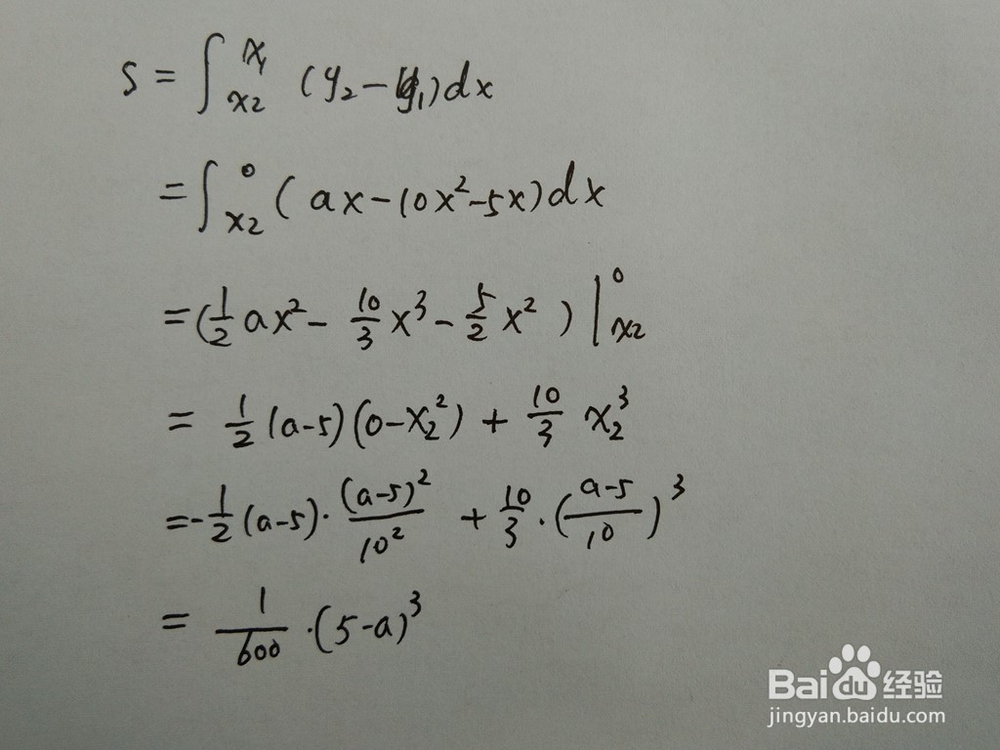 S = ∫_{x2}^{x1} (y2 - y1) dx
= ∫_{x2}^{0} ( ax - 10x² - 5x) dx
= (1/2 ax² - 10/3 x³ - 5/2 x² ) |_{x2}^{0}
= 1/2 (a-5)(0-x2²) + 10/3 x2³
= -1/2 (a-5)·(a-5)²/10² + 10/3 ·((a-5)/10)³
= 1/600 ·(5-a)³
Baidu经验
jingyan.baidu.com